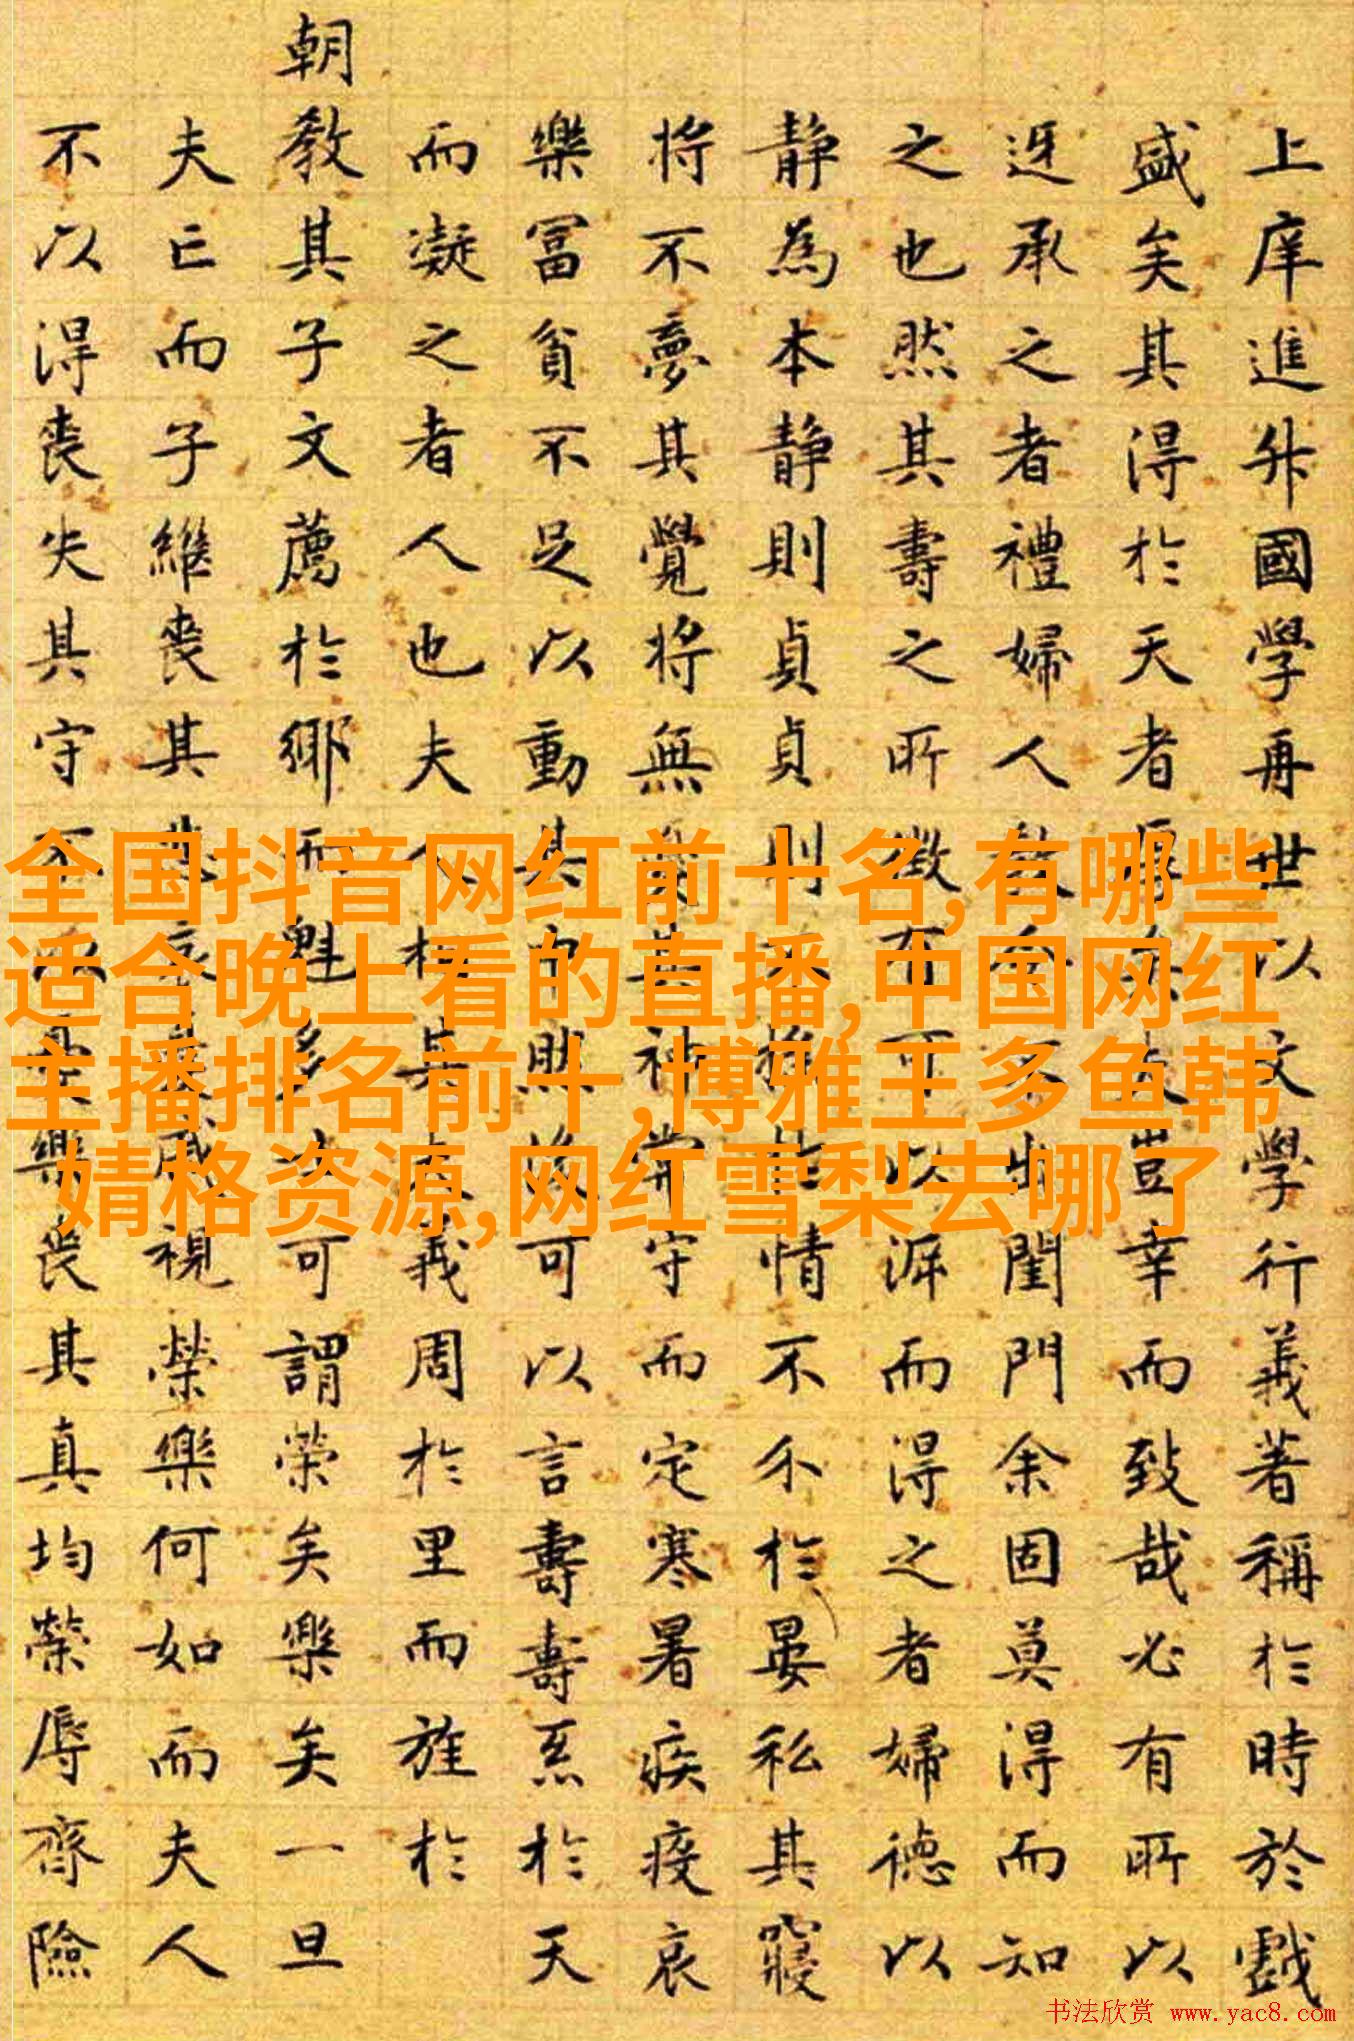 上庠進升國學再世以文學行義著稱於時於戲
盛矣其得於天者豈幸而致哉必有所以
迓承之者禮婦人出閨門余固莫得而知
之也然其壽之所徵有可以涯而得之者婦德以
静為本静則貞貞則情不介於晏私其寢
将不夢其覺将無其神常守而定寒暑疾疫哀
樂冨貧不足以動其中然後可以言壽壽烝於天
而凝之者人也夫人相其夫義周於里而旌於
朝教其子文薦於鄉而魁多可謂榮矣樂矣一旦
夫亡而子繼喪其哀戚視榮樂何如而夫人
不以得喪失其守不樂喪其真均榮辱齊險
全国抖音网红前十名,有哪些
适合晚上看的直播,中国网红
主播排名前十,博雅王多鱼韩
婧格资源,网红雪梨去哪了
书法欣赏 www.yac8.com